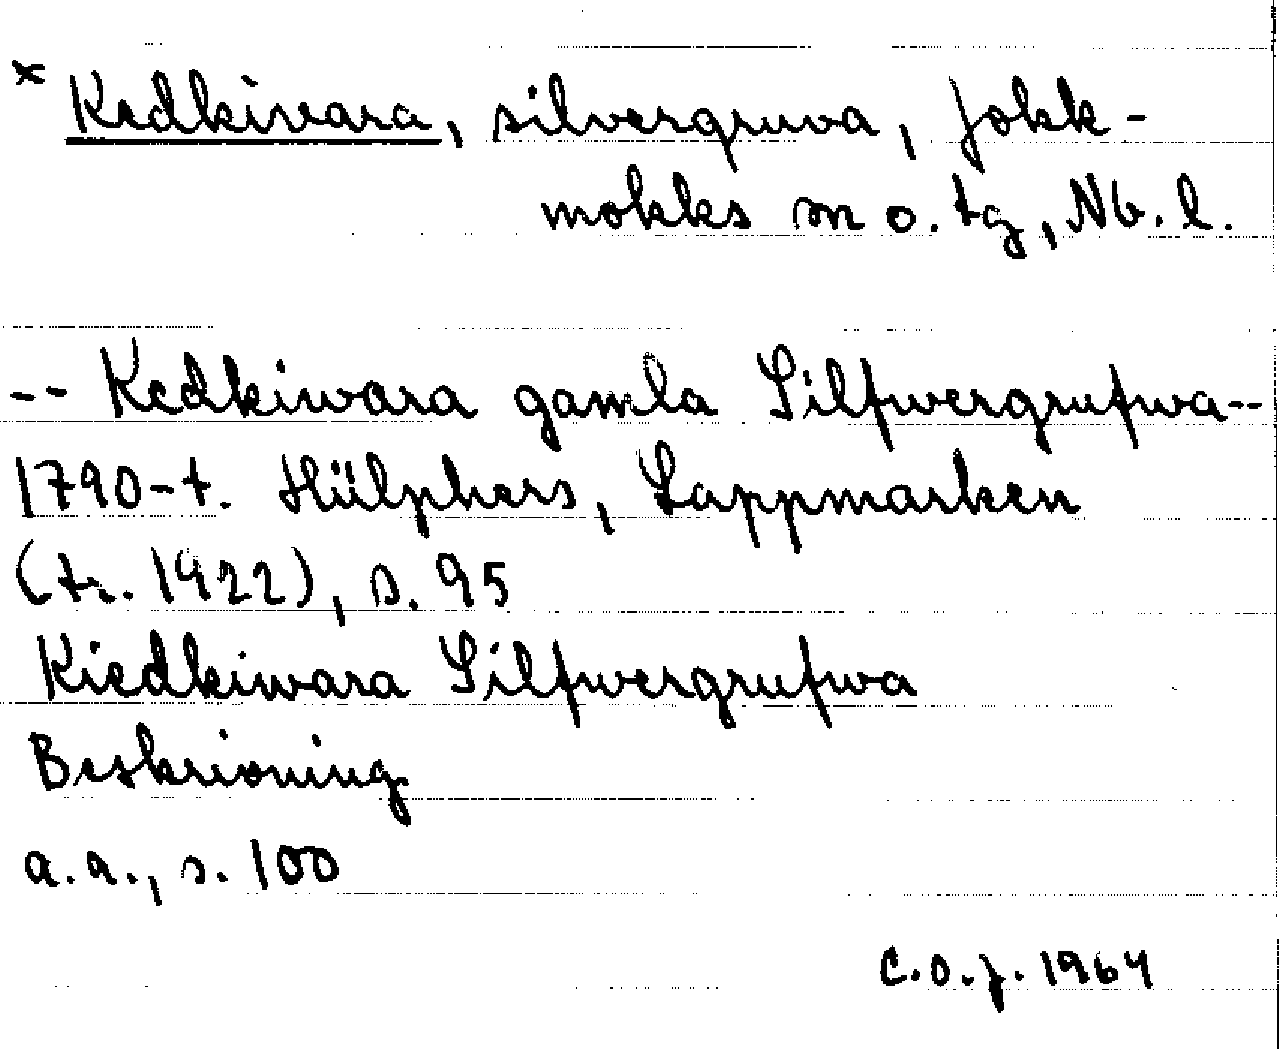 × Kedkivara, silvergruva, Jokk-
mokks sn o. tg, Nb. l.
-- Kedkiwara gamla Silfwergrufwa--
1790-t. Hülphers, Lappmarken
(tr. 1922), s. 95
Kiedkiwara Silfwergrufwa
Beskrivning
a.a., s. 100
C.O.J. 1964